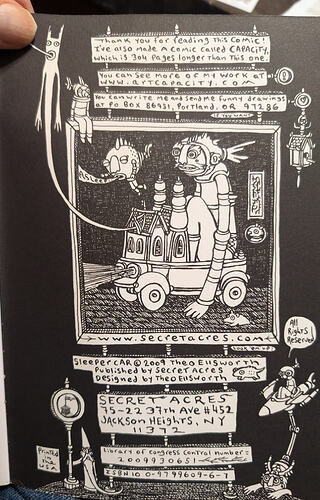 Thank you for reading this comic!
I've also made a comic called CAPACITY,
which is 304 pages longer than this one.
You can see more of my work at
www.artcapacity.com
You can write me and send me funny drawings
at PO Box 86951, Portland, OR 97286
if you want
ASLEEP
www.secretacres.com
Sleeper Car © 2009 Theo Ellsworth
Published by Secret Acres
Designed by Theo Ellsworth
All
Rights
Reserved
SECRET ACRES
75-22 37th Ave #452
Jackson Heights, NY
11372
Printed
in
USA
Library of Congress Control number:
2009930651
ISBN 10 0-9799609-6-7